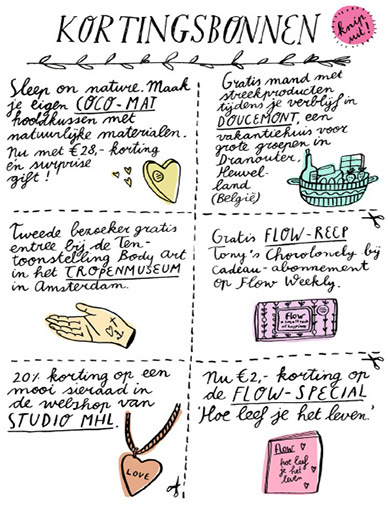 KORTINGSBONNEN
knip
uit!
Sleep on nature. Maak
je eigen COCO-MAT
hoofdkussen met
natuurlijke materialen.
Nu met €28,- korting
en surprise
gift!
Gratis mand met
streekproducten
tijdens je verblijf in
DOUCEMONT, een
vakantiehuis voor
grote groepen in
Dranouter,
Heuvel-
land
(België)
Tweede bezoeker gratis
entree bij de Ten-
toonstelling Body Art
in het TROPENMUSEUM
in Amsterdam.
Gratis FLOW-REEP
Tony's Chocolonely bij
cadeau-abonnement
op Flow Weekly.
Flow
20% korting op een
mooi sieraad in
de webshop van
STUDIO MHL.
LOVE
Nu €2,- korting op
de FLOW-SPECIAL
'Hoe leef je het leven.'
Flow
hoe leef
je het
leven